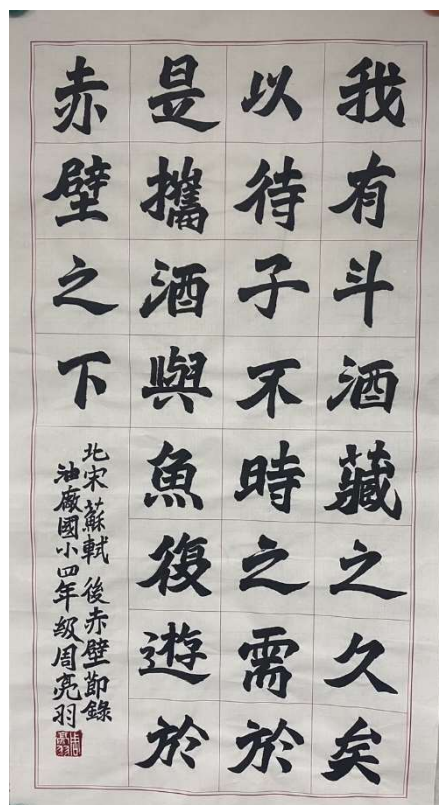 我有斗酒藏之久矣
以待子不時之需於
是攜酒與魚復遊於
赤壁之下
北宋蘇軾 後赤壁節錄
油廠國小四年級周亮羽